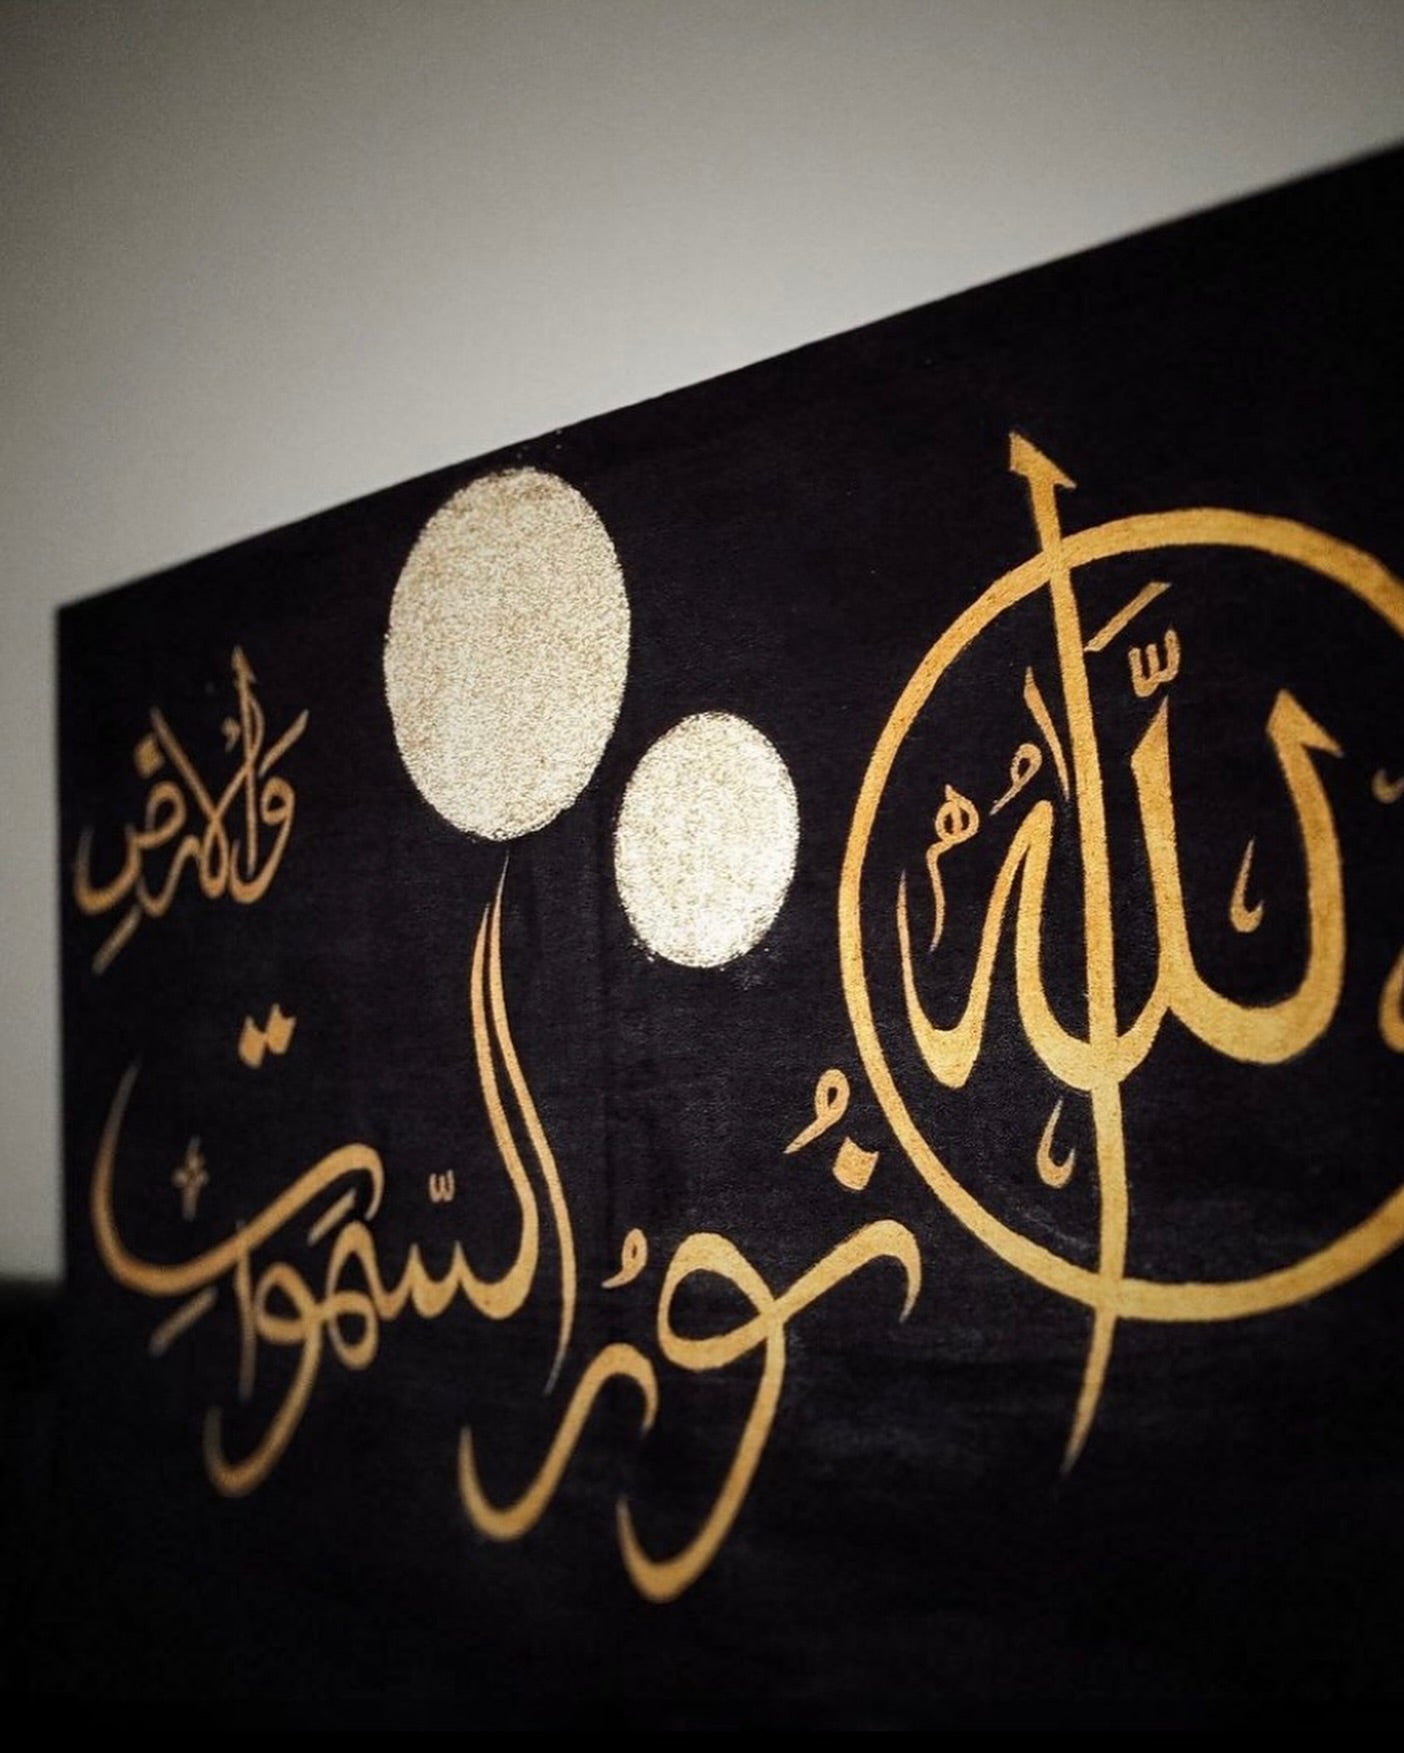 اللَّهُ
نُورُ السَّمَوَاتِ
وَالْأَرْضِ